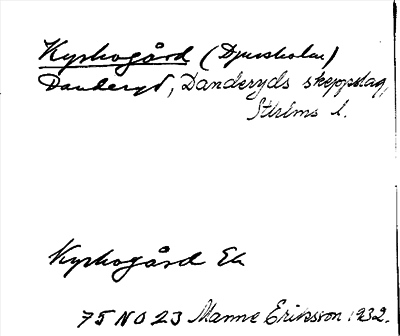 Kyrkogård (Djursholm)
Danderyd, Danderyds skeppslag,
Sthlms l.
Kyrkogård Ek
75 NO 23 Manne Eriksson 1932.